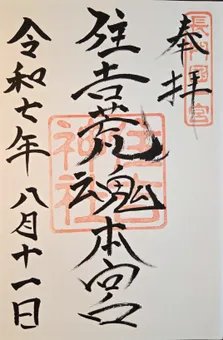 奉拝
住吉荒魂本宮
住吉
神社
令和七年八月十一日